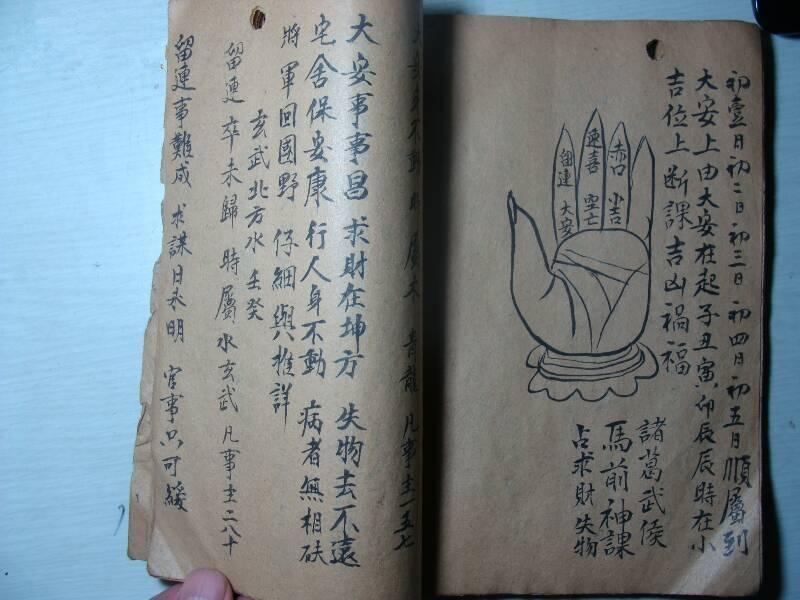 初壹日初二日初三日初四日初五日順屬到
大安上由大安在起子丑寅卯辰辰時在小
吉位上断課吉凶禍福
赤口 小吉
速喜 空亡
留連 大安
諸葛武侯
馬前神課
占求財失物
身不動 屬木 青龍 凡事主一五七
大安事事昌 求財在坤方 失物去不遠
宅舍保安康 行人身不動 病者無相砆
將軍回國野 仔細與推詳
玄武北方水 壬癸
留連 卒未歸時屬水玄武 凡事主二八十
留連事難成 求謀日未明 官事只可緩